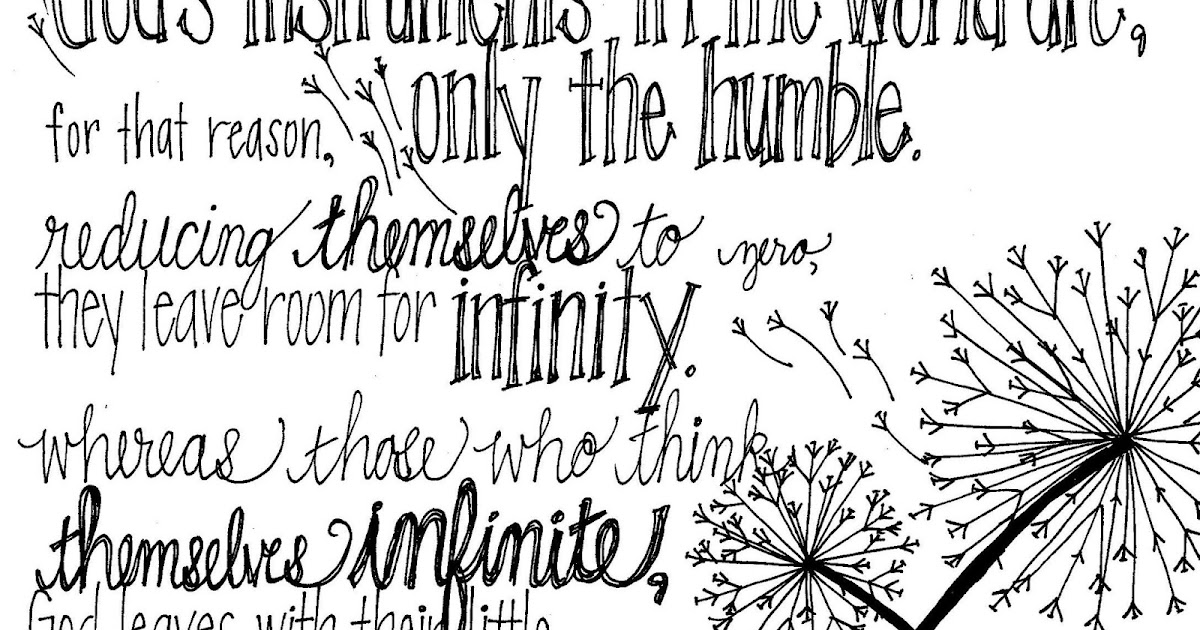 God's instruments in the world are,
for that reason, only the humble.
reducing themselves to zero,
they leave room for infinity.
whereas those who think
themselves infinite,
God leaves with their little